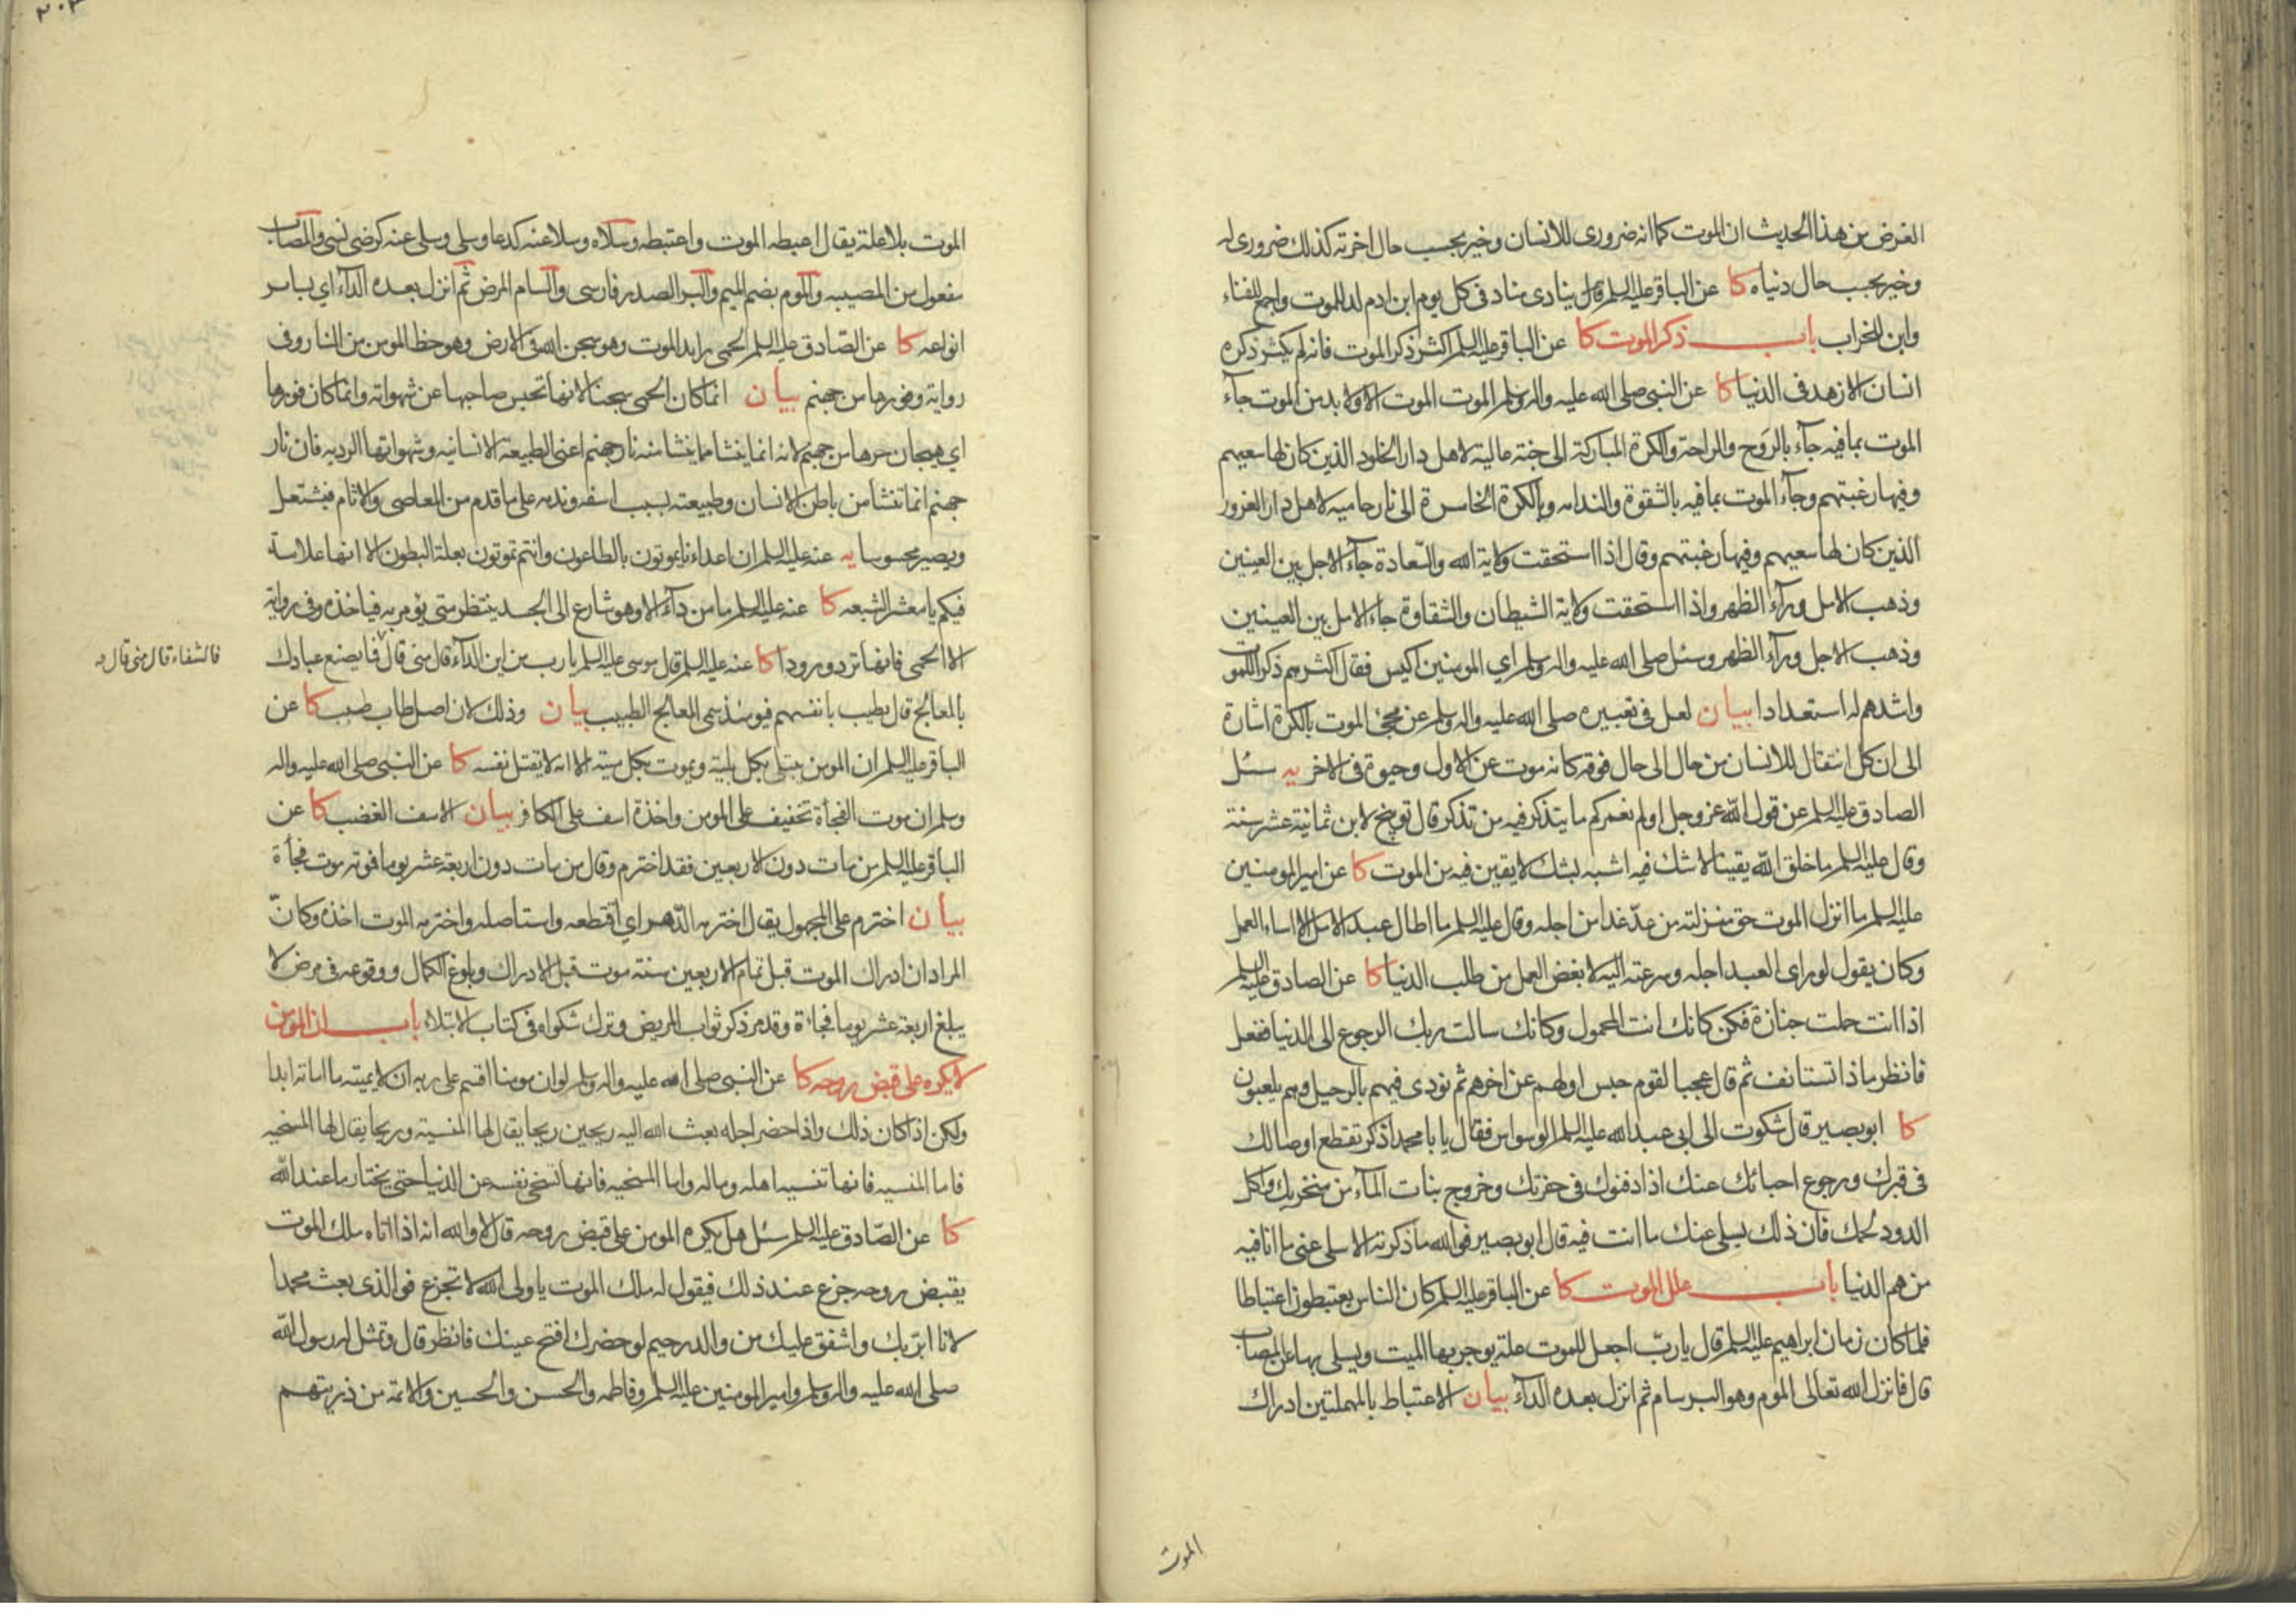 الغرض من هذا الحديث ان الموت كما انه ضرورى للانسان وخير بحسب حال اخرته كذلك ضرورى له
وخير بحسب حال دنياه كا عن الباقر عليه السلم قال ينادى مناد فى كل يوم ابن ادم لد للموت واجمع للفناء
وابن للخراب باب ذكر الموت كا عن الباقر عليه السلم اكثر ذكر الموت فانه لم يكثر ذكره
انسان الا زهد فى الدنيا كا عن النبى صلى الله عليه واله وسلم الموت الموت الا ولا بد من الموت جآء
الموت بما فيه جآء بالرَوح والراحة والكرة المباركة الى جنة عالية لاهل دار الخلود الذين كان لها سعيهم
وفيها رغبتهم وجآء الموت بما فيه بالشقوة والندامه وبالكرة الخاسرة الى نار حاميه لاهل دار الغرور
الذين كان لها سعيهم وفيها رغبتهم وقال اذا استحقت ولاية الله والسّعادة جآء الاجل بين العينين
وذهب الامل ورآء الظهر واذا استحقت ولاية الشيطان والشقاوة جاء الامل بين العينين
وذهب الاجل ورآء الظهر وسئل صلى الله عليه واله وسلم اي المومنين اكيس فقال اكثرهم ذكرا للموت
واشدهم له استعدادا بيان لعل فى تعبيره صلى الله عليه واله وسلم عن مجئ الموت بالكرة اشارة
الى ان كل انتقال للانسان من حال الى حال فوقه كانه موت عن الاول وحيوة فى الاخر يه سئل
الصادق عليه السلم عن قول الله عز وجل اولم نعمركم ما يتذكر فيه من تذكر قال توبيخ لابن ثمانية عشر سنة
وقال عليه السلم ما خلق الله يقينا لا شك فيه اشبه بشك لا يقين فيه من الموت كا عن امير المومنين
عليه السلم ما انزل الموت حق منزلته من عدّ غدا من اجله وقال عليه السلم ما اطال عبد الامل الا اساء العمل
وكان يقول لو راى العبد اجله وسرعته اليه لابغض العمل من طلب الدنيا كا عن الصادق عليه السلم
اذا انت حملت جنازة فكن كانك انت المحمول وكانك سالت ربك الرجوع الى الدنيا ففعل
فانظر ماذا تستانف ثم قال عجبا لقوم حبس اولهم عن اخرهم ثم نودى فيهم بالرحيل وهم يلعبون
كا ابو بصير قال شكوت الى ابى عبد الله عليه السلم الوسواس فقال يا با محمد اذكر تقطع اوصالك
فى قبرك ورجوع احبائك عنك اذا دفنوك فى حفرتك وخروج بنات المآء من منخريك واكل
الدود لحمك فان ذلك يسلى عنك ما انت فيه قال ابو بصير فوالله ما ذكرته الا سلى عنى ما انا فيه
من هم الدنيا باب علل الموت كا عن الباقر عليه السلم كان الناس يعتبطون اعتباطا
فلما كان زمان ابراهيم عليه السلم قال يا ربّ اجعل للموت علة يوجر بها الميت ويسلى بها عن المصاب
قال فانزل الله تعالى الموم وهو البرسام ثم انزل بعده الدآء بيان الاعتباط بالمهملتين ادراك
الموت
الموت بلا علة يقال اعبطه الموت واعتبطه وسلاه وسلا عنه كدعا وسلى وسلى عنه كرضى نسى والمصاب
مفعول من المصيبه والموم بضم الميم والبر الصدر فارسى والسام المرض ثم انزل بعده الدآء اي بساير
انواعه كا عن الصّادق عليه السلم الحمى رايد الموت وهو سجن الله فى الارض وهو حظ المومن من النار وفى
رواية وفورها من جهنم بيان انما كان الحمى سجنا لانها تحبس صاحبها عن شهواته وانما كان فورها
اي هيجان حرها من جهنم لانه انما ينشا مما ينشا منه نار جهنم اعنى الطبيعة الانسانيه وشهواتها الرديه فان نار
جهنم انما تنشا من باطن الانسان وطبيعته بسبب اسفه وندمه على ما قدم من المعاصى والاثام فيشتعل
ويصير محسوسا يه عنه عليه السلم ان اعداءنا يموتون بالطاعون وانتم تموتون بعلة البطون الا انها علامة
فيكم يا معشر الشيعه كا عنه عليه السلم ما من دآء الا وهو شارع الى الجسد ينتظر متى يؤمر به فياخذه وفى رواية
الا الحمى فانها ترد ورودا كا عنه عليه السلم قال موسى عليه السلم يا رب من اين الدآء قال منى قال فما يصنع عبادك
فالشفاء قال منى قال
بالمعالج قال يطيب بانفسهم فيومئذ سمى المعالج الطبيب بيان وذلك لان اصل طاب طبب كا عن
الباقر عليه السلم ان المومن يبتلى بكل بلية ويموت بكل ميتة الا انه لا يقتل نفسه كا عن النبى صلى الله عليه واله
وسلم ان موت الفجأة تخفيف على المومن واخذة اسف على الكافر بيان الاسف الغضب كا عن
الباقر عليه السلم من مات دون الاربعين فقد اخترم وقال من مات دون اربعة عشر يوما فموته موت فجأة
بيان اخترم على المجهول يقال اخترمه الدّهر اي اقتطعه واستاصله واخترمه الموت اخذه وكانّ
المراد ان ادراك الموت قبل تمام الاربعين سنة موت قبل الادراك وبلوغ الكمال ووقوعه فى مرض لا
يبلغ اربعة عشر يوما فجاءة وقد مر ذكر ثواب المريض وترك شكواه فى كتاب الابتلاء باب ان المومن
لا يكره على قبض روحه كا عن النبى صلى الله عليه واله وسلم لو ان مومنا اقسم على ربه ان لا يميته ما اماته ابدا
ولكن اذا كان ذلك واذا حضر اجله بعث الله اليه ريحين ريحا يقال لها المنسية وريحا يقال لها المسخيه
فاما المنسيه فانها تنسيه اهله وماله واما المسخيه فانها تسخى نفسه عن الدنيا حتى يختار ما عند الله
كا عن الصّادق عليه السلم سئل هل يكره المومن على قبض روحه قال لا والله انه اذا اتاه ملك الموت
يقبض روحه جزع عند ذلك فيقول له ملك الموت يا ولى الله لا تجزع فوالذى بعث محمدا
لانا ابر بك واشفق عليك من والد رحيم لو حضرك افتح عينك فانظر قال وتمثل له رسول الله
صلى الله عليه واله وسلم وامير المومنين عليه السلم وفاطمه والحسن والحسين والائمة من ذريتهم